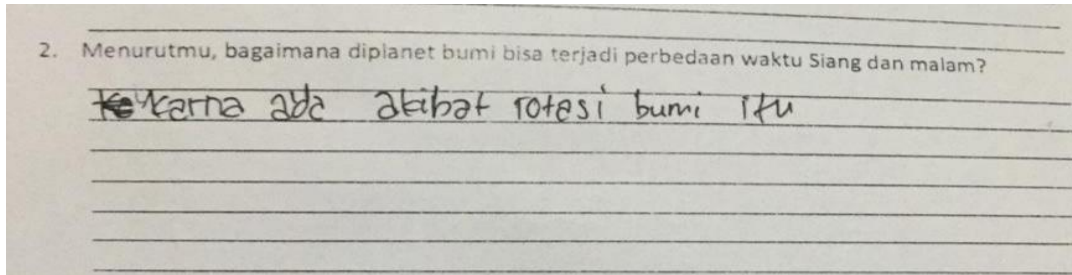 2. Menurutmu, bagaimana diplanet bumi bisa terjadi perbedaan waktu Siang dan malam?
karna ada akibat rotasi bumi itu